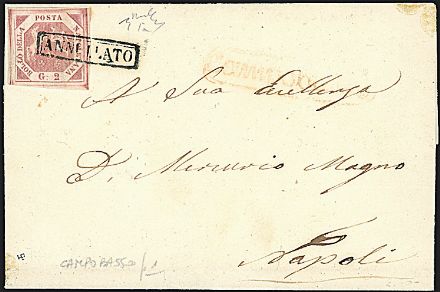 POSTA
BOLLO DELLA
G. 2
ANNULLATO
A Sua Eccellenza
D. Mercurio Magno
Napoli
CAMPOBASSO